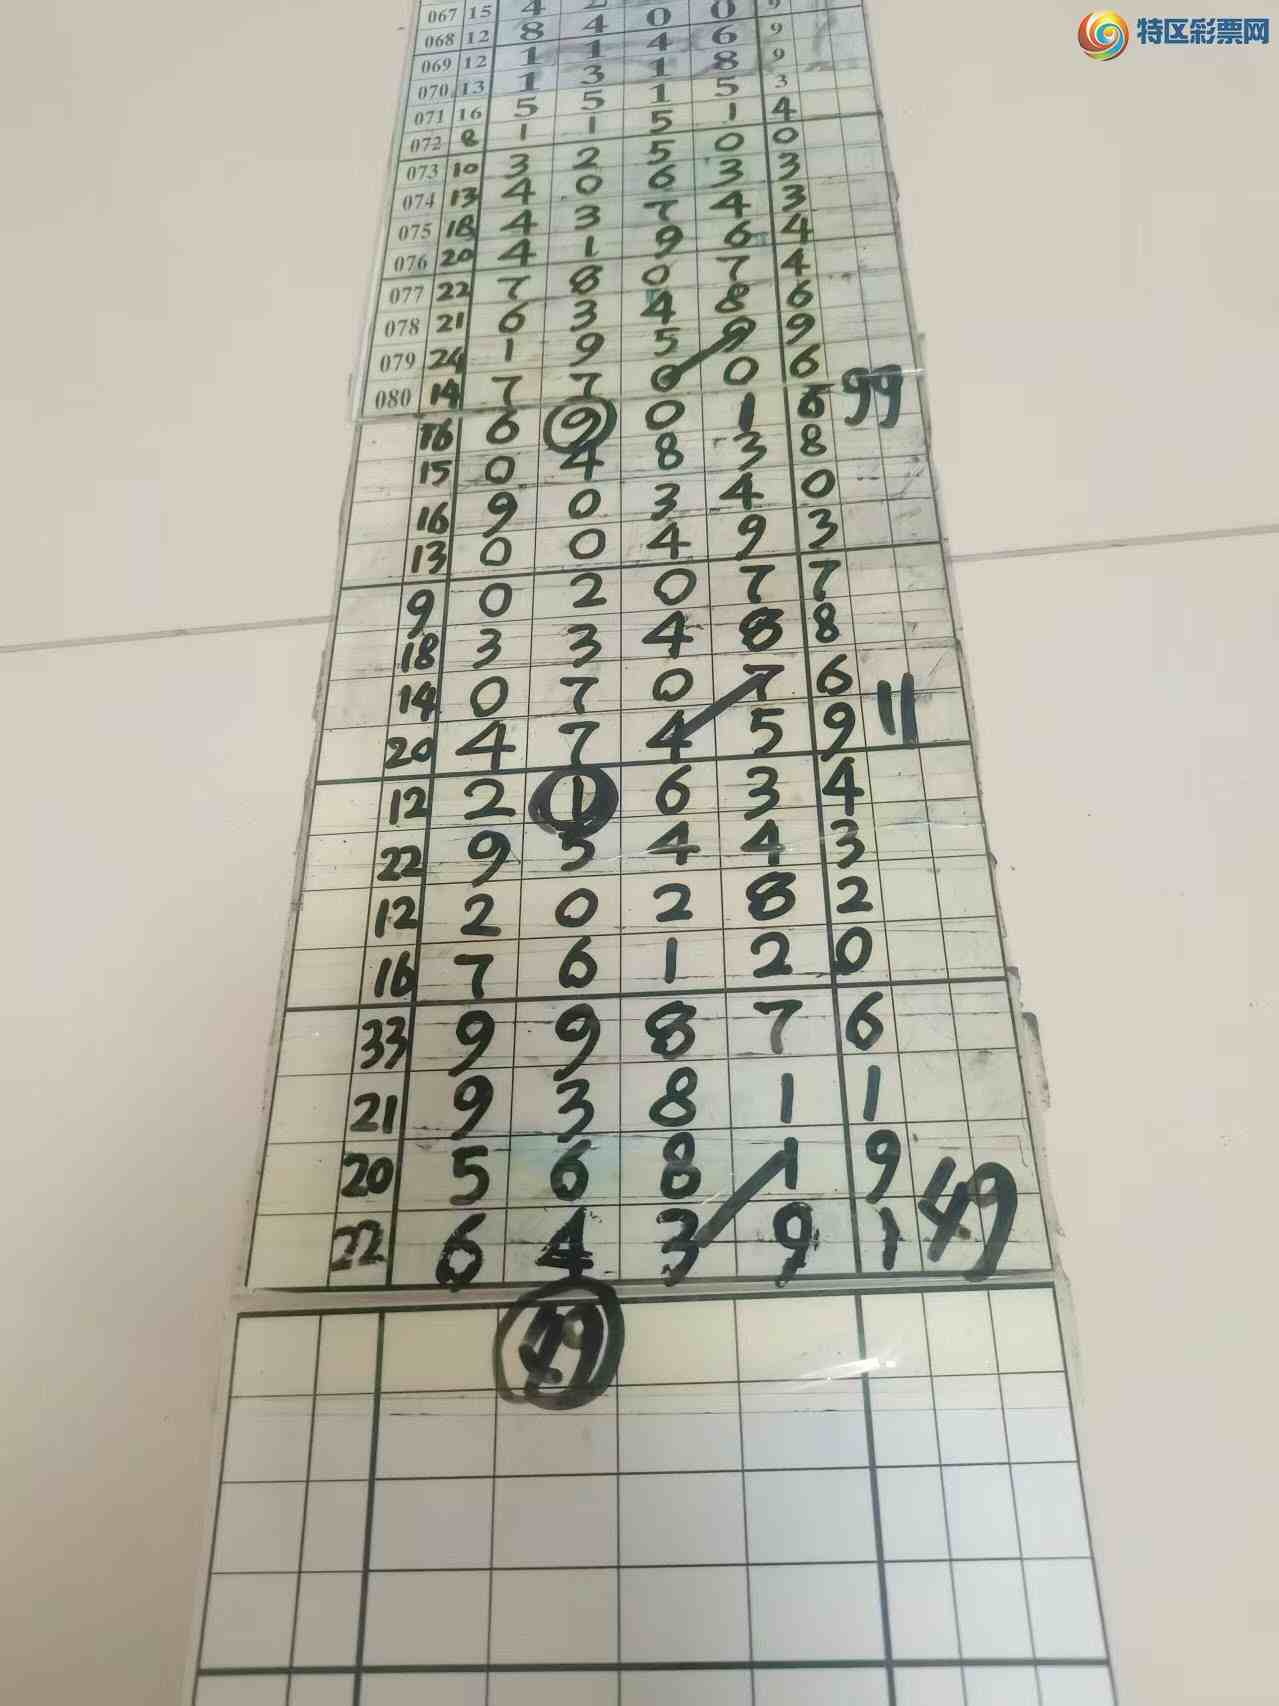 特区彩票网
067 15 4 2 0 0 9
068 12 8 4 4 6 9
069 12 1 1 1 8 9
070 13 1 3 1 5 3
071 16 5 5 5 1 4
072 8 1 1 5 0 0
073 10 3 2 6 3 3
074 13 4 0 7 4 3
075 18 4 3 9 6 4
076 20 4 1 0 7 4
077 22 7 8 4 8 6
078 21 6 3 5 9 9
079 24 1 9 0 6
080 14 7 7 0 0 6
16 6 9 0 1 6 99
15 0 4 8 3 8
16 9 0 3 4 0
13 0 0 4 9 3
9 0 2 0 7 7
18 3 3 4 8 8
14 0 7 0 7 6
20 4 7 4 5 9 11
12 2 1 6 3 4
22 9 5 4 4 3
12 2 0 2 8 2
16 7 6 1 2 0
33 9 9 8 7 6
21 9 3 8 1 1
20 5 6 8 1 9
22 6 4 3 9 1 49
49